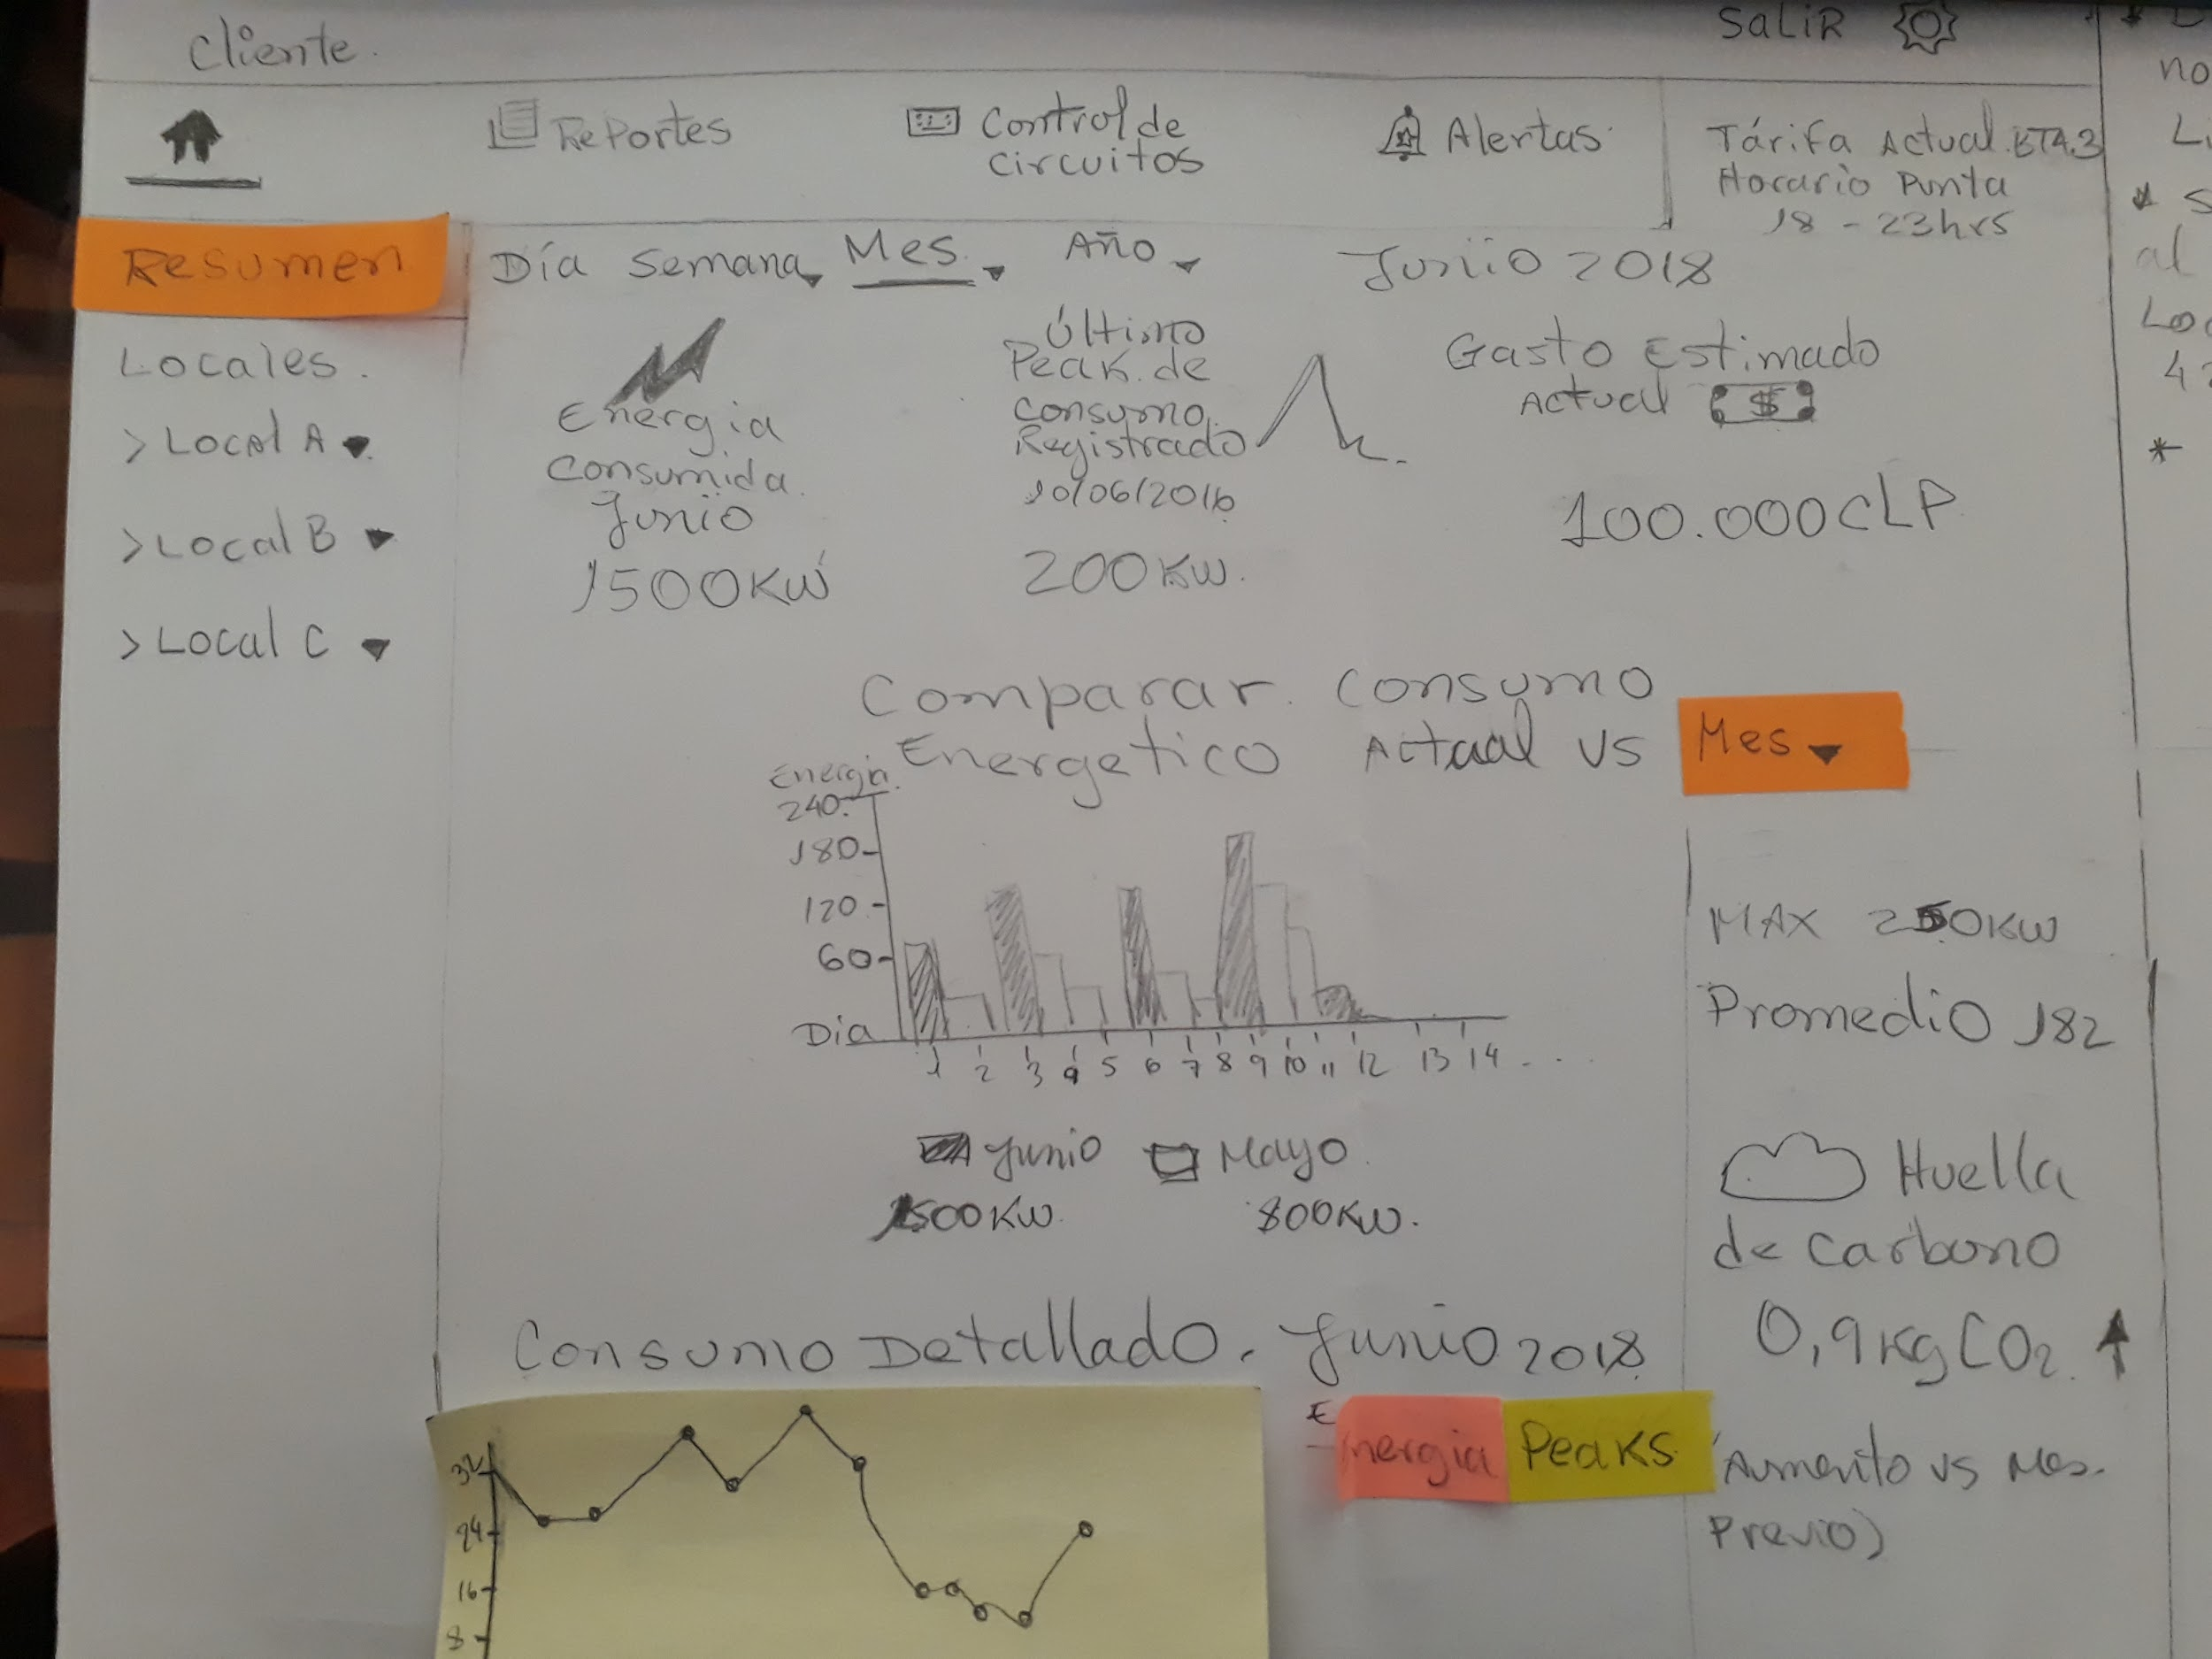 Cliente.
SALIR
Reportes
Control de
circuitos
Alertas
Tárifa Actual BT4.3
Horario Punta
18 - 23hrs
Resumen
Día Semana Mes Año
Junio 2018
Locales.
> Local A
> Local B
> Local C
Energia
Consumida
Junio
1500KW
Último
Peak de
consumo
Registrado
200KW.
Gasto Estimado
Actual $
100.000CLP
Comparar Consumo
Energetico Actual VS Mes
Energia
240
180
120
60
Dia
1 2 3 4 5 6 7 8 9 10 11 12 13 14 . . .
Junio Mayo
1500KW 800KW.
MAX 250KW
Promedio 182
Huella
de carbono
0,9KgCO2
(Aumento vs Mes
Previo)
Consumo Detallado. Junio 2018
Energia Peaks
32
24
16
8
no
al